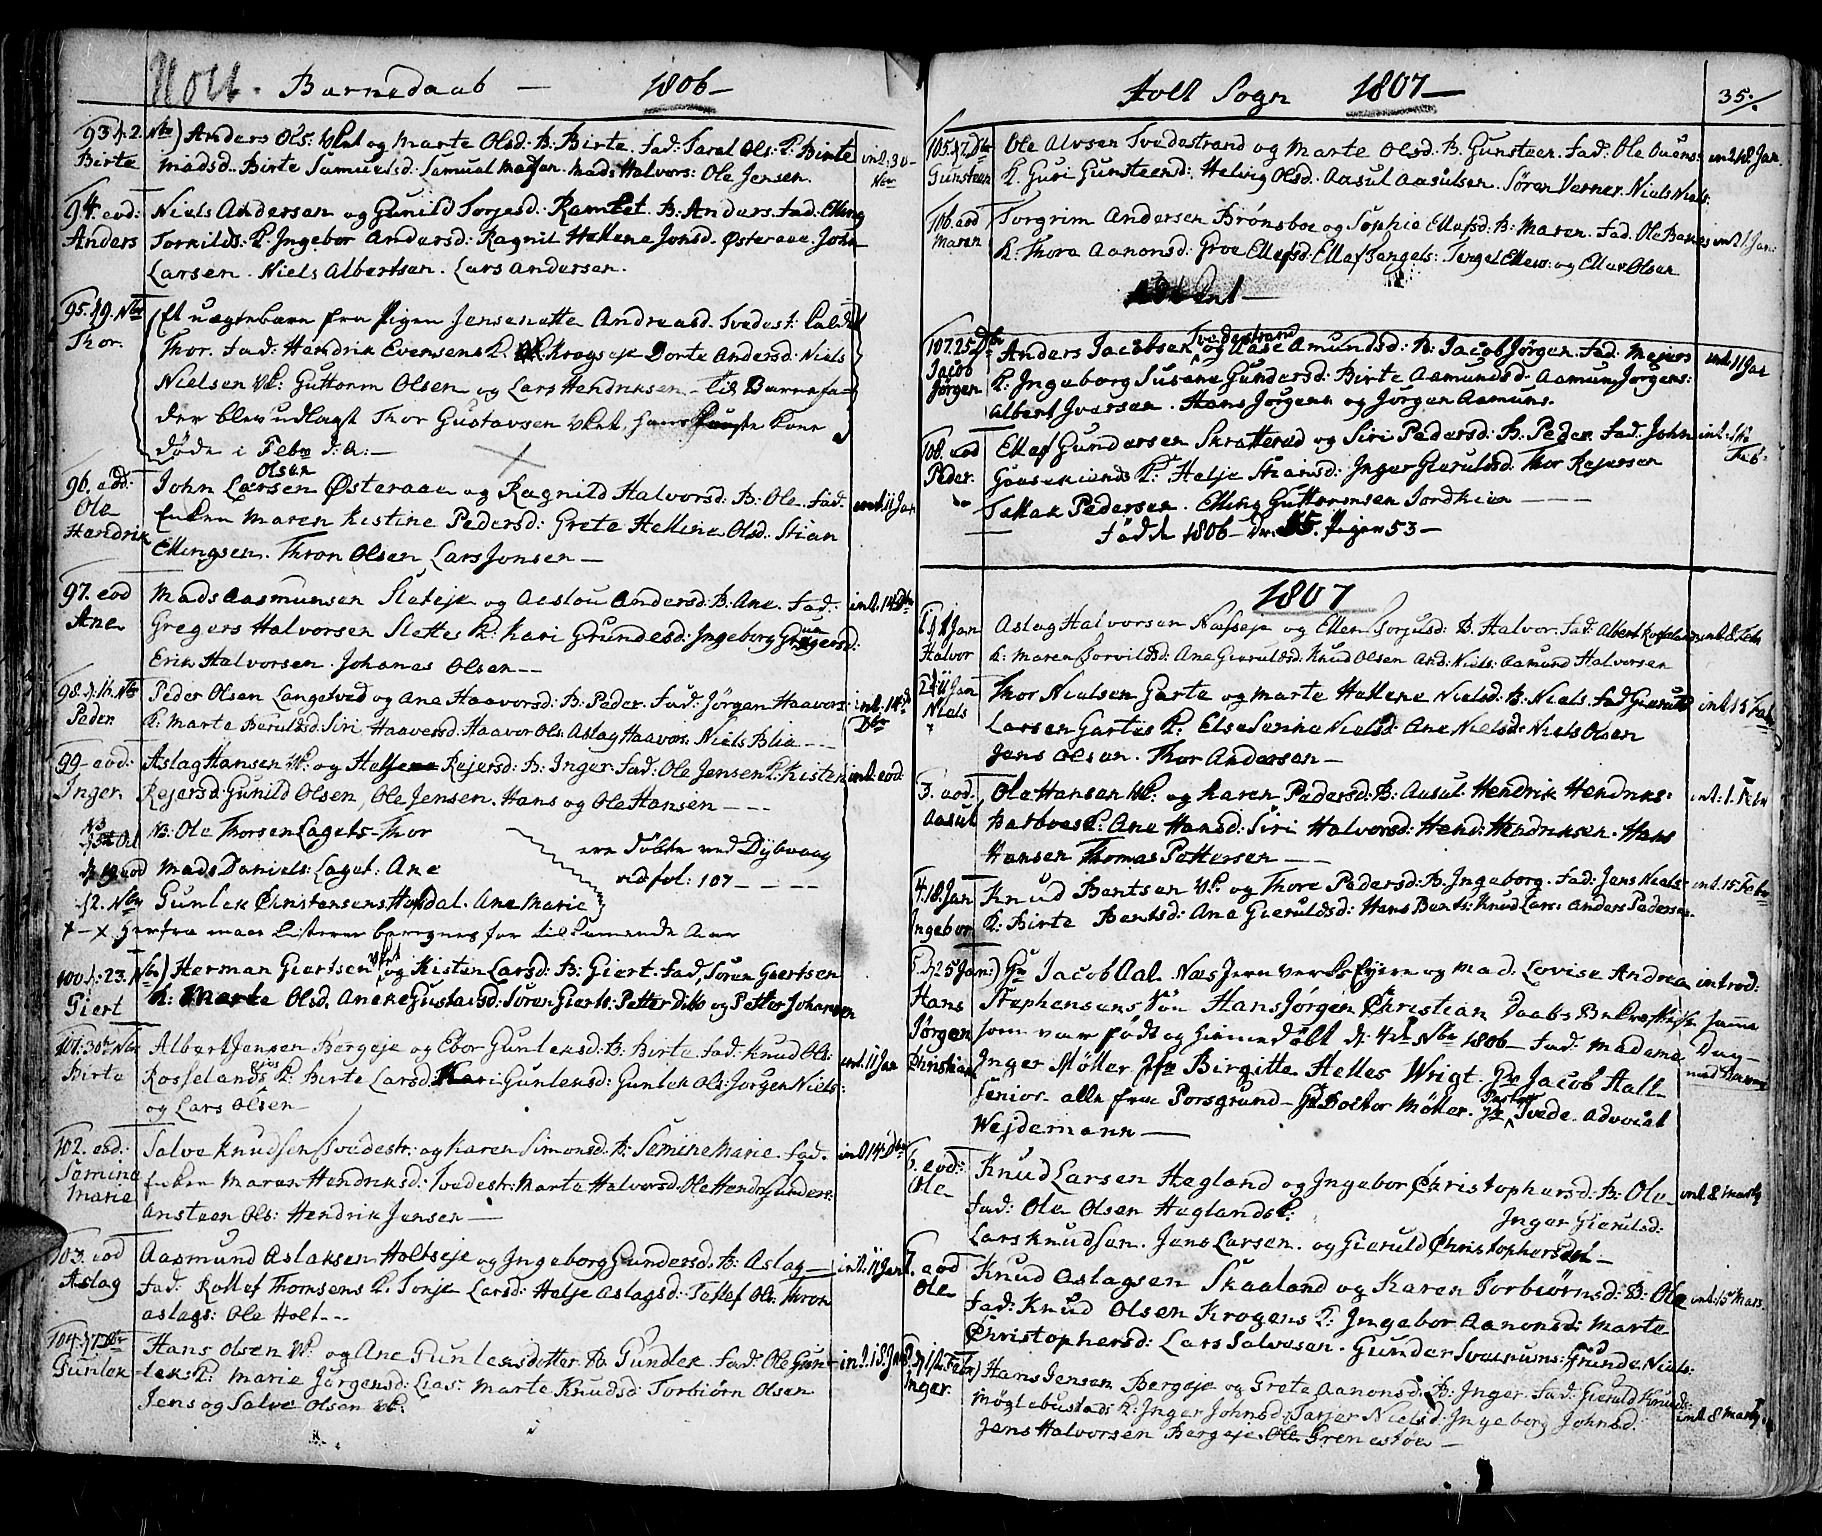 Barnedaab — 1806 —
93. d. 2. Nbr) Anders Ols: Vklet og Marte Olsd. B: Birte. Fad: Taral Ols: K: Birte
Birte Madsd. Birte Samuelsd: Samual Madsen. Mads Halvors: Ole Jensen.
int. 30 Nbr
94. eod: Niels Andersen og Gunild Torjesd: Ramlet. B: Anders Fad: Elling
Anders Torkilds: K. Ingebor Andersd: Ragnil Hellene Jonsd. Østeraae. John
Larsen. Niels Albertsen. Lars Andersen.
95. d. 9. Nbr Et uægtebarn fra Pigen Jensenette Andreasd. Tvedest: kaldet
Thor. Thor. Fad: Hendrik Evensens K. Krogseje Dorte Andersd: Niels
Nielsen Vk: Guttorm Olsen og Lars Hendriksen — Til Barnefa-
der blev udlagt Thor Gustavsen Vklet, hans første Kone
døde i Febr d: A: —
96. eod: John Larsen Olsen Østeraae og Ragnild Halvorsd: B: Ole. Fad.
Ole Enken Maren Kistine Pedersd: Grete Hellene Olsd. Stian
Hendrik Ellingsen. Thron Olsen Lars Jonsen —
int. 11 Jan
97. eod Mads Aasmunsen Sleteje og Aeslou Andersd: B: Ane. Fad:
Ane Gregers Halvorsen Slettes K: Kari Grundesd: Ingeborg Gregersd:
Erik Halvorsen. Johanes Olsen —
int. 14 Dbr
98. d. 16. Nbr Peder Olsen Langetved og Ane Haavorsd: B: Peder. Fad: Jørgen Haavors:
Peder K: Marte Beruldsd: Siri Haavorsd: Haavor Ols: Aslag Haavors: Niels Blia —
int. 14 Dbr
99. eod: Aslag Hansen Vk: og Helje Rejersd: B: Inger. Fad: Ole Jensen K: Kisten
Inger. Rejersd: Gunild Olsen, Ole Jensen. Hans og Ole Hansen —
int. eod:
NB: Ole Thorsen Lagets — Thor
d. 19 eod Mads Daniels: Laget. Ane
d. 2. Nbr Gunlek Christensens Ane Marie
ere døbte ved Dybvaag
vid fol: 107 —
Herfra maae Listerne beregnes for tilkomende Aar
100. d. 23. Nbr) Herman Giertsen Vklet og Kisten Larsd: B: Giert. Fad. Søren Giertsen
Giert K: Marte Olsd. Anne Gustavsd: Søren Gierts: Petter Dito og Petter Johansen
101. 30te Nbr Albert Jensen Bergeje og Ebor Gunleksd: B: Birte. Fad: Knud Ols:
Birte Rosselands K: Birte Larsd. Kari Gunleksd: Gunlek Ols: Jørgen Niels:
og Lars Olsen —
int. 11 Jan
102. eod: Salve Knudsen Tvedestr: og Karen Simonsd: B: Semine Marie. Fad.
Semine Marie Enken Maren Hendriksd: Tvedestr: Marte Halvorsd: Ole Hendr: Gunder:
Ansteen Ols: Hendrik Jensen —
int. 14 Dbr
103. eod Aasmund Aslaksen Holtseje og Ingeborg Gundersd: B: Aslag —
Aslag Fad: Rollef Thomsens K. Tonje Larsd: Helje Aslagsd: Tellef Ols: Thron
Aslags: Ole Holt —
int. 11 Jan
104. d. 7 Dbr Hans Olsen Vk: og Ane Gunleksdotter B: Gunlek. Fad: Ole Gun-
Gunlek leks K: Marie Jørgensd: Lias: Marte Knudsd: Torbiørn Olsen
Jens og Salve Olsen Vk.
int. 18. Jan
Holt Sogn 1807 — 35.
105. d. 7. Dbr Ole Alvsen Tvedestrand og Marte Olsd. B: Gunsteen. Fad: Ole Ovens:
Gunsteen K. Guri Gunsteensd: Helvig Olsd. Aasul Aasulsen. Søren Verner. Niels Niels:
int. 18. Jan
106. eod Torgrim Andersen Brønsboe og Sophie Ellefsd: B: Maren. Fad. Ole Banes
Maren K: Thora Aanonsd: Groe Ellefsd: Ellef Bangels: Tengel Ellevs: og Ellev Olsen
int. 1 Jan:
Advent —
107. 25 Dbr Anders Jacobsen Tvedestrand og Aase Amundsd: B: Jacob Jørgen. Fad: Majors
Jacob Jørgen K: Ingeborg Susane Gundersd: Birte Aamundsd: Aamun Jørgens:
Albert Iversen. Hans Jørgens og Jørgen Aamuns.
int. 11 Jan
108. eod Ellef Gundersen Skratterud og Siri Pedersd: B: Peder. Fad: John
Peder. Gaasekiends K: Helje Steansd: Inger Gieruldsd: Thor Rejersen
Tellak Pedersen. Elling Guttormsen Songheia —
int. Feb:
Fødde 1806 — Dr. 55. Piger 53 —
1807
1. d. 1 Jan Aslag Halvorsen Næseje og Ellen Torjusd: B. Halvor. Fad: Albert
Halvor K: Maren Torvildsd: Ane Gieruldsd: Knud Olsen And: Niels: Aamund Halvorsen
int. 8 Febr
2. d. 11 Jan Thor Nielsen Garte og Marte Hellene Nielsd: B: Niels. Fad Gieruld
Niels Larsen Gartes K: Else Serine Nielsd: Ane Nielsd: Niels Olsen
Jens Olsen. Thor Andersen —
int. 15 Feb
3. eod: Ole Hansen Vk: og Karen Pedersd: B: Aasul. Hendrik Hendriks:
Aasul Barboes K: Ane Hansd: Siri Halvorsd: Hend: Hendriksen. Hans
Hansen Thomas Pettersen —
int: 1. Febr
4. 18. Jan Knud Bentsen Vk. og Thore Pedersd: B: Ingeborg. Fad: Jens Niels:
Ingebor K: Birte Bentsd: Ane Gieruldsd: Hans Bents: Knud Lars: Anders Pedersen
int. 15. Febr
5. d. 25 Jan:) Hr Jacob Aal. Næs Jernverks Ejere og Mad. Lovise Andrea
Hans Stephensens Søn Hans Jørgen Christian Daabs Bekræftelse
Jørgen som var født og hjemmedøbt d: 4de Nbr 1806 — Fad: Madame
Christian Inger Møller Jfr Birgitte Helles Wrigt. Hr Jacob Aall
Senior. alle fra Porsgrund — Hr Doctor Møller. Hr Pastor Tvede. Advocat
Wejdemann —
introd: samme Dag —
6. eod: Knud Larsen Hegland og Ingebor Christophersd: B: Ole
Ole Fad: Ole Olsen Heglands K: Inger Gierulsd:
Lars Knudsen. Jens Larsen. og Gieruld Christophersen —
int. 8 Marty
7. eod Knud Aslagsen Skaaland og Karen Torbiørnsd: B: Ole
Ole Fad: Knud Olsen Krogens K: Ingebor Aanonsd: Marte
Christophersd: Lars Salvesen. Gunder Sveinuns: Grunde Niels:
int: 15 Mars
8. d. 12. Febr) Hans Jensen Bergeje og Grete Aanonsd: B: Inger. Fad: Gieruld Knuds:
Inger. Møglebustads K: Inger Johnsd: Tarjer Nielsd: Ingeborg Johnsd.
Jens Halvorsen Bergeje. Ole Grenestøe —
int. 8 Marty